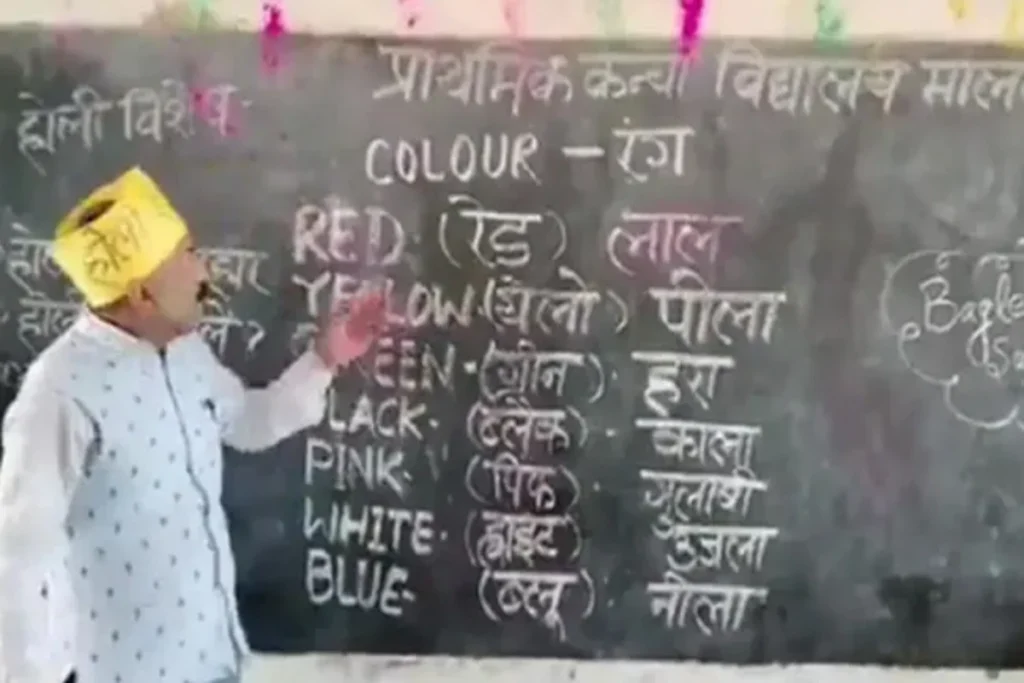 प्राथमिक कन्या विद्यालय
होली विशेष:-
COLOUR - रंग
होली
RED. (रेड) लाल
YELLOW. (येलो) पीला
GREEN. (ग्रीन). हरा
BLACK. (ब्लैक). काला
PINK. (पिंक). गुलाबी
WHITE. (ह्वाइट) उजला
BLUE- (ब्लू). नीला